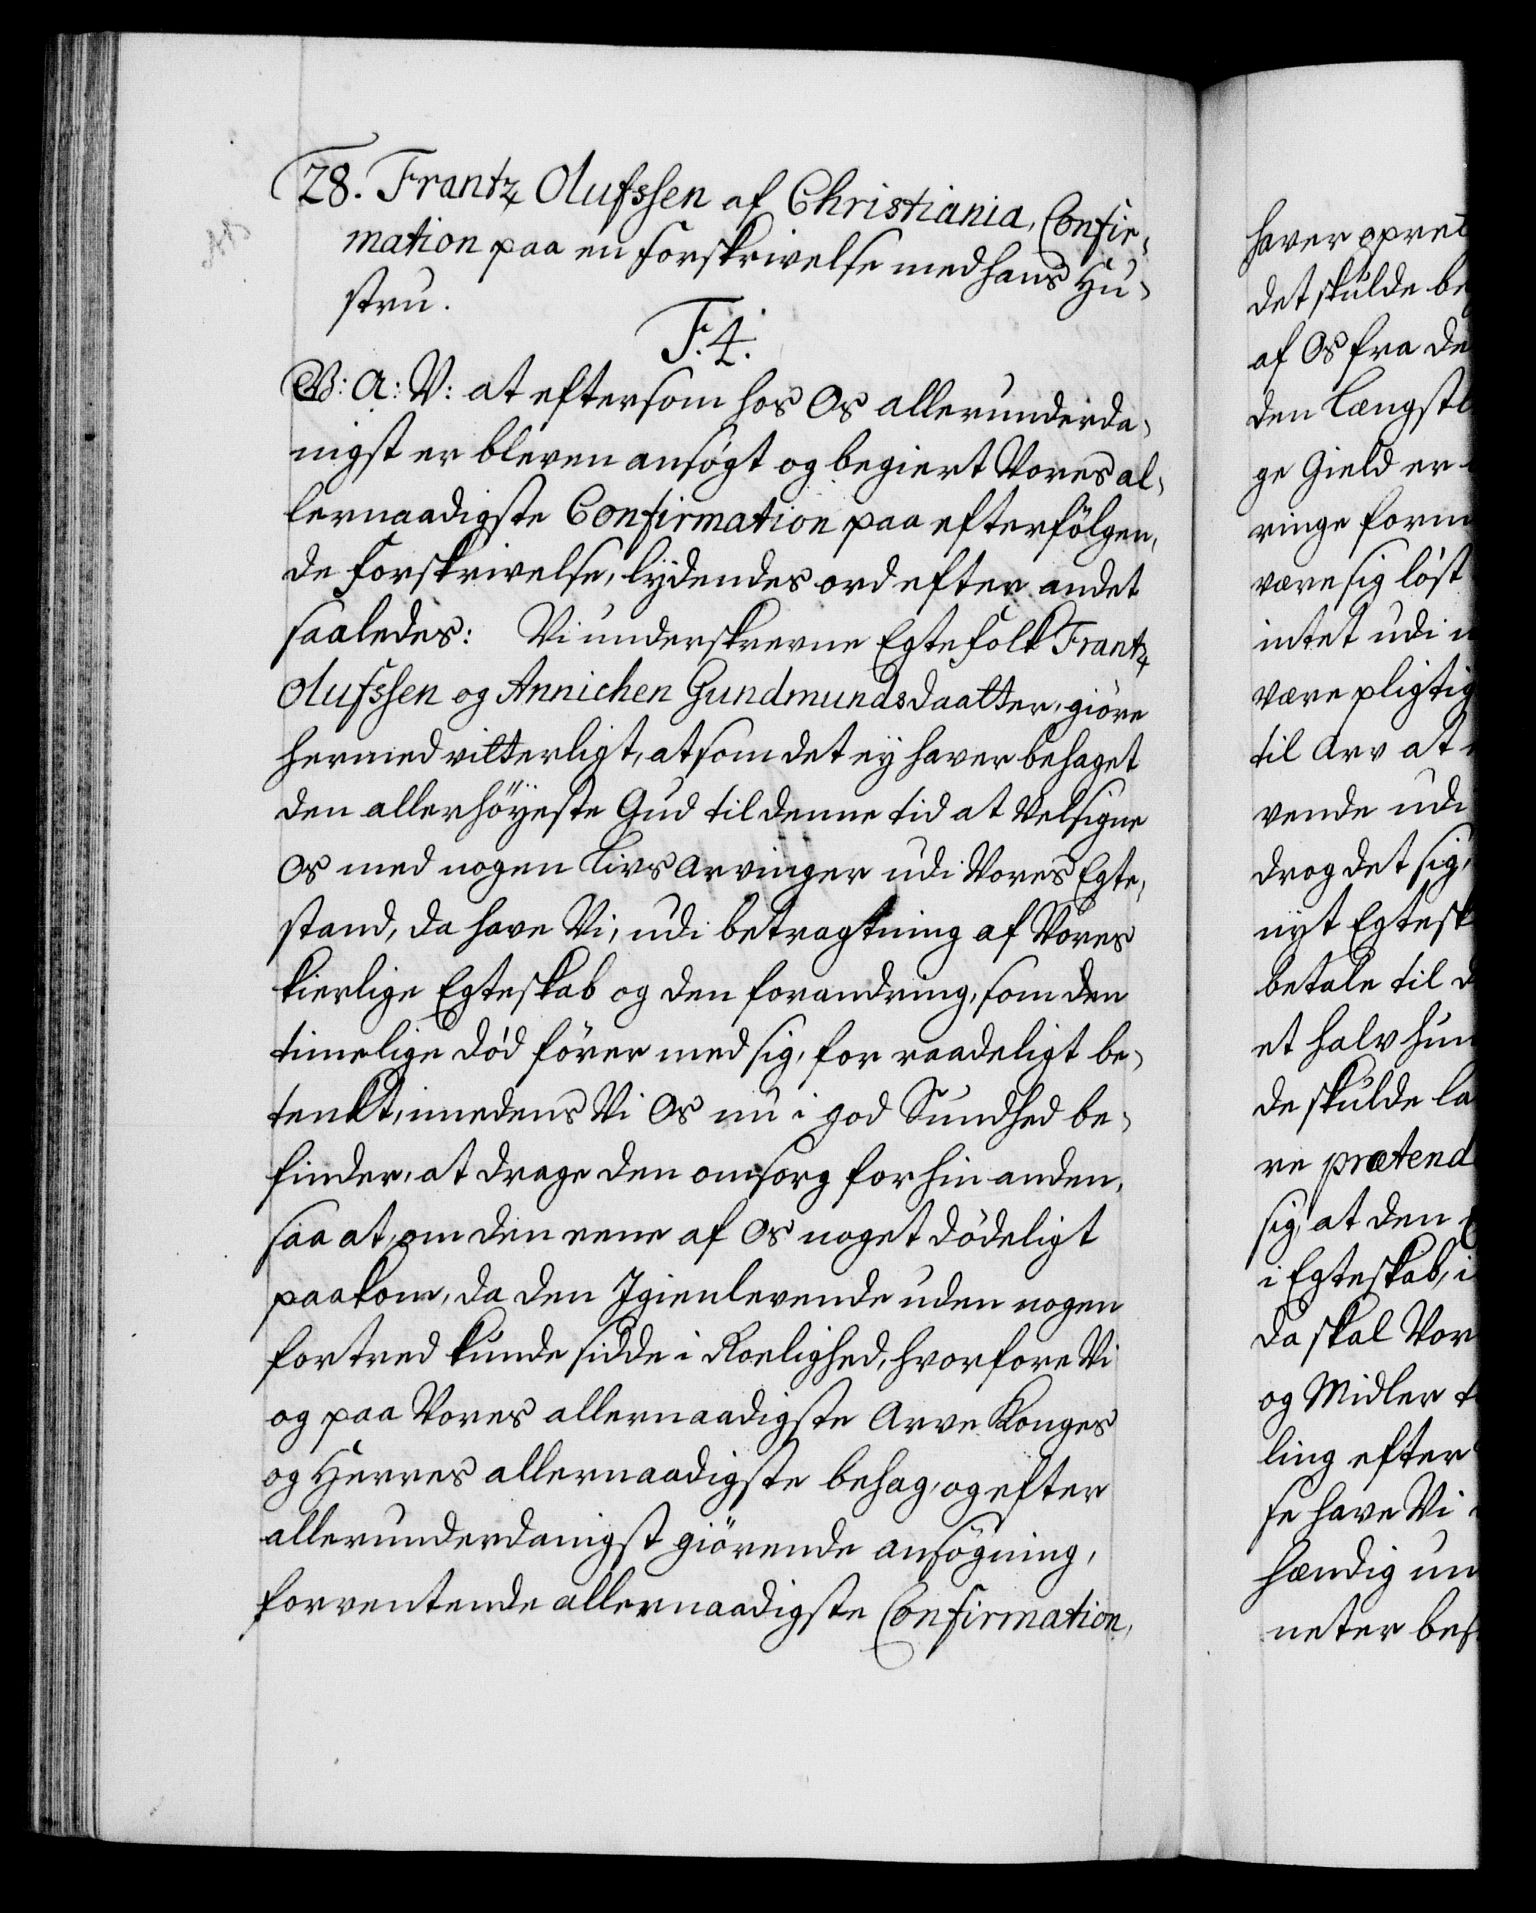 28. Frantz Olufssen af Christiania, Confir-
mation paa en forskrivelse med hans Hu-
stru.
F. 4.
W: A: V: at eftersom hos Os allerunderda-
nigst er bleven ansøgt og begiert Vores al-
lernaadigste Confirmation paa efterfölgen-
de forskrivelse, lydendes ord efter andet
saaledes: Vi underskrevne Egtefolk Frantz
Olufssen og Annichen Gundmundsdaatter, giöre
hermed vitterligt, at som det ey haver behaget
den allerhöyeste Gud til denne tid at Velsigne
Os med nogen livs arvinger udi Vores Egte-
stand, da have Vi, udi betragtning af Vores
kierlige Egteskab og den forandring, som den
timelige død förer med sig, for raadeligt be-
tenkt, imedens Vi Os nu i god Sundhed be-
finder, at drage den omsorg for hin anden,
saa at, om den eene af Os noget dödeligt
paakom, da den Igienlevende uden nogen
fortred kunde sidde i Roelighed, hvorfore Vi
og paa Vores allernaadigste Arve Konges
og Herres allernaadigste behag, og efter
allerunderdanigst giörende ansögning,
forventende allernaadigste Confirmation,
haver opret
det skulde be
af Os fra de
den længstl
ge Gield er
ringe form
være sig løst
intet udi
være pligtig
til Arv at
vende udi
drog det sig,
nyt Egtesk
betale til d
et halv hun
de skulde la
re prætend
sig, at den
i Egteskab, i
da skal Vor
og Midler t
ling efter
se have Vi
hændig un
neter bes